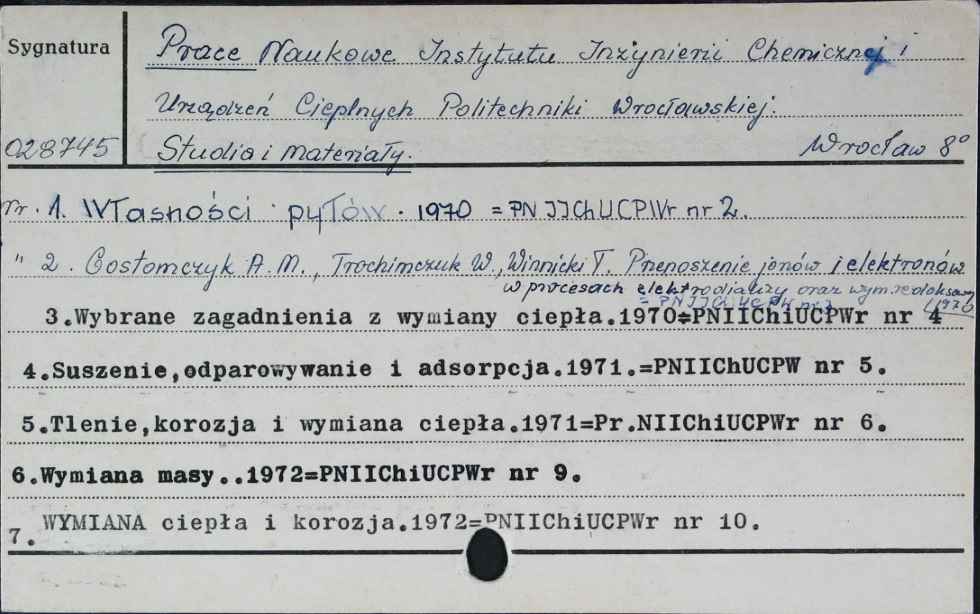 Sygnatura
Prace Naukowe Instytutu Inżynierii Chemicznej i
Urządzeń Cieplnych Politechniki Wrocławskiej.
028745 Studia i materiały. Wrocław 8°
Nr. 1. Własności pyłów. 1970 = PNIIChUCPWr nr 2.
" 2. Gostomczyk A. M., Trochimczuk W., Winnicki T. Przenoszenie jonów i elektronów
w procesach elektrodializy oraz wym. redoksowej
= PNIIChUCPW nr 3 (1970)
3.Wybrane zagadnienia z wymiany ciepła.1970=PNIIChiUCPWr nr 4
4.Suszenie,odparowywanie i adsorpcja.1971.=PNIIChUCPW nr 5.
5.Tlenie,korozja i wymiana ciepła.1971=Pr.NIIChiUCPWr nr 6.
6.Wymiana masy..1972=PNIIChiUCPWr nr 9.
7. WYMIANA ciepła i korozja.1972=PNIIChiUCPWr nr 10.